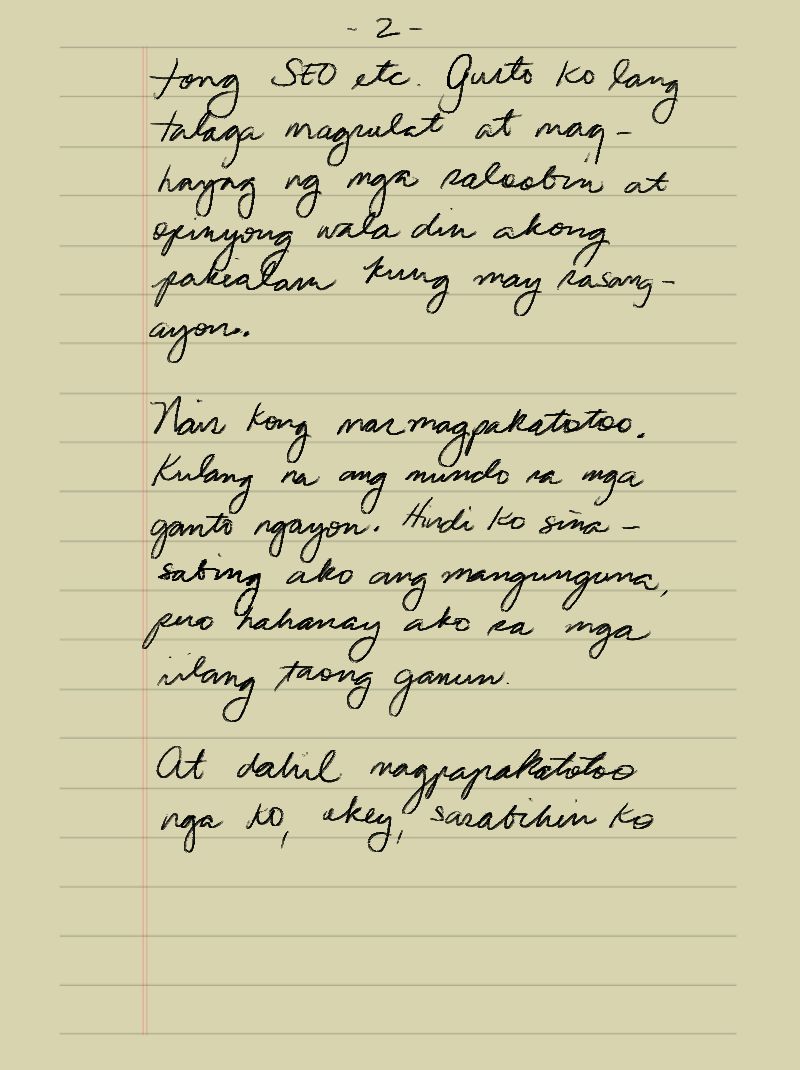 - 2 -
tong SEO etc. Gusto ko lang
talaga magsulat at mag-
hayag ng mga saloobin at
opinyong wala din akong
pakialam kung may sasang-
ayon.
Nais kong mas magpakatotoo.
Kulang na ang mundo sa mga
ganto ngayon. Hindi ko sina-
sabing ako ang mangunguna,
pero hahanay ako sa mga
iilang taong ganun.
At dahil nagpapakatotoo
nga ko, okey, sasabihin ko